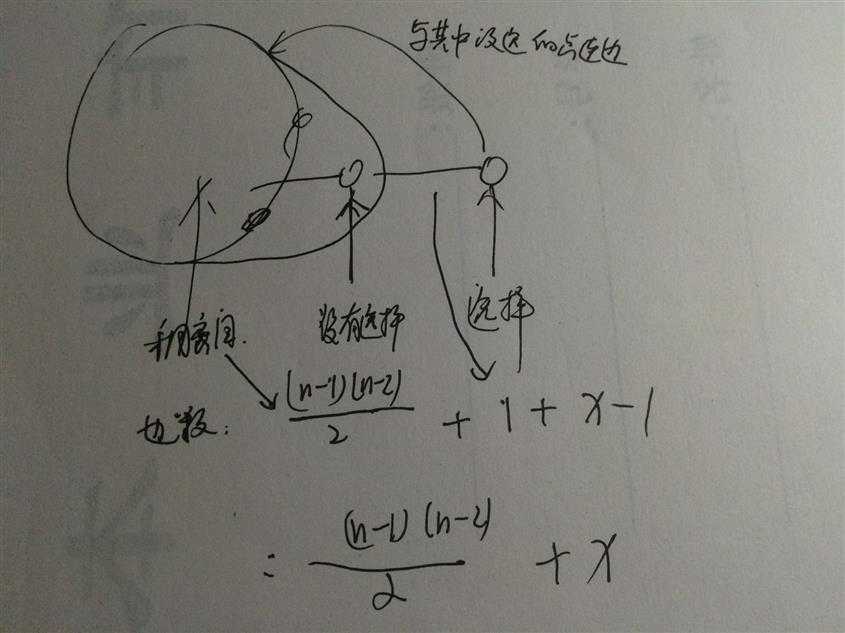 与其中没选的点连边
没有选择
选择
边数: (n-1)(n-2)/2 + 1 + x - 1
= (n-1)(n-2)/2 + x